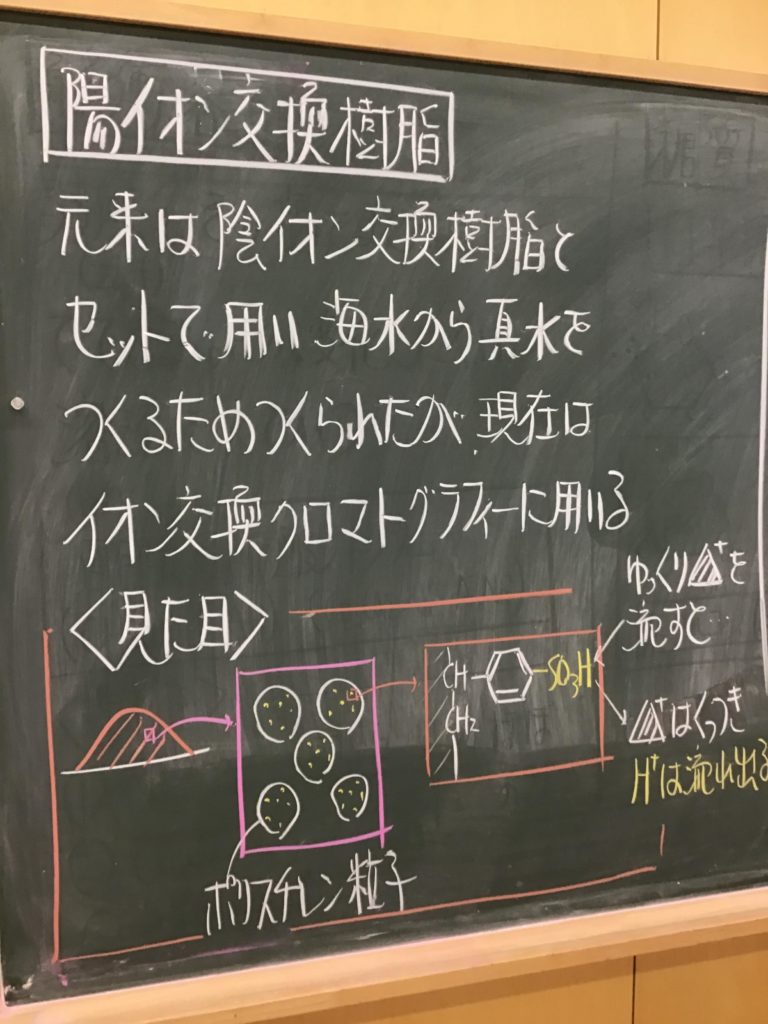 陽イオン交換樹脂
元来は陰イオン交換樹脂と
セットで用い海水から真水を
つくるためつくられたが、現在は
イオン交換クロマトグラフィーに用いる
〈見た目〉
ゆっくり△⁺を
流すと…
CH-SO₃H
CH₂
△⁺はくっつき
H⁺は流れ出る
ポリスチレン粒子